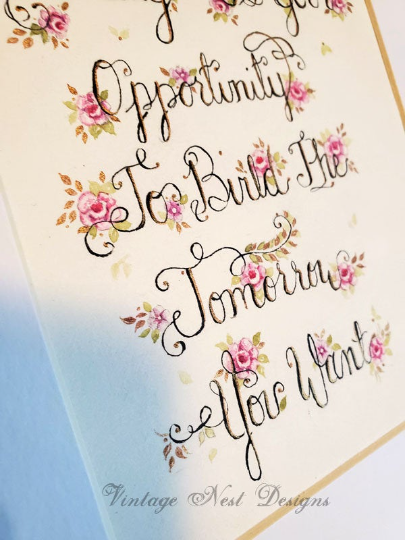 Your
Opportunity
To Build The
Tomorrow
You Want
Vintage Nest Designs